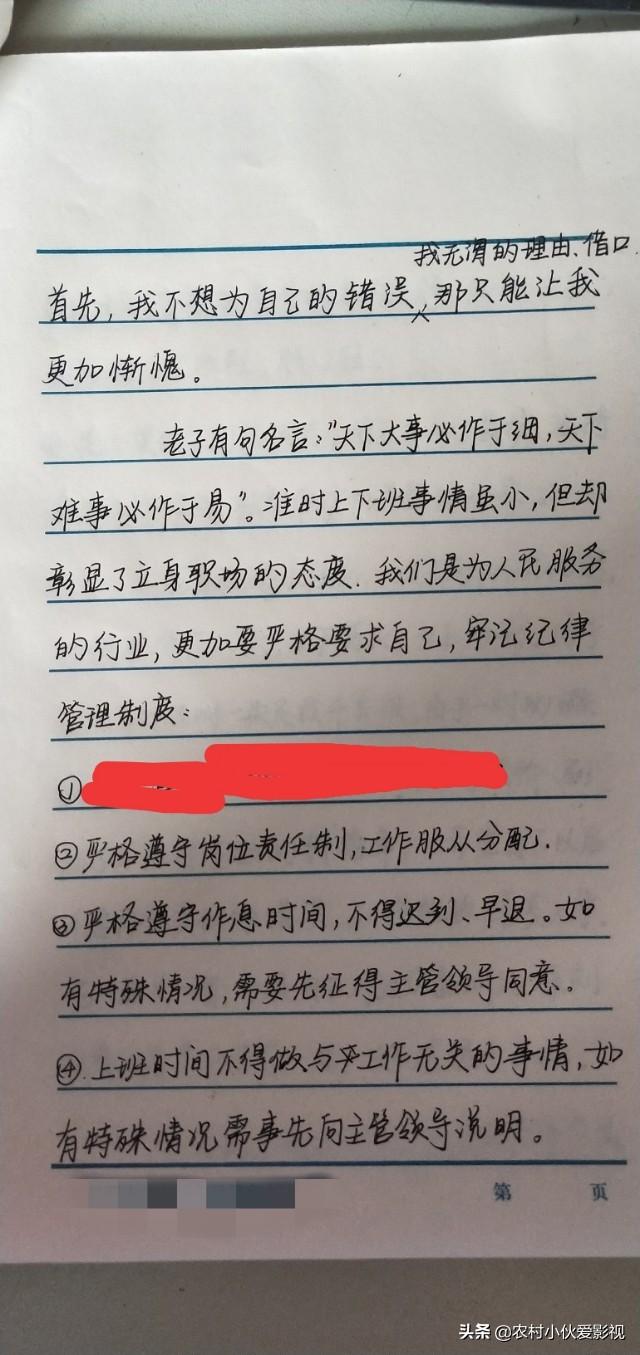 我无谓的理由、借口
首先，我不想为自己的错误，那只能让我
更加惭愧。
老子有句名言："天下大事必作于细，天下
难事必作于易"。准时上下班事情虽小，但却
彰显了立身职场的态度．我们是为人民服务
的行业，更加要严格要求自己，牢记纪律
管理制度：
①
②严格遵守岗位责任制，工作服从分配．
③严格遵守作息时间，不得迟到、早退。如
有特殊情况，需要先征得主管领导同意。
④．上班时间不得做与平工作无关的事情，如
有特殊情况需事先向主管领导说明。
第 页
头条 @农村小伙爱影视